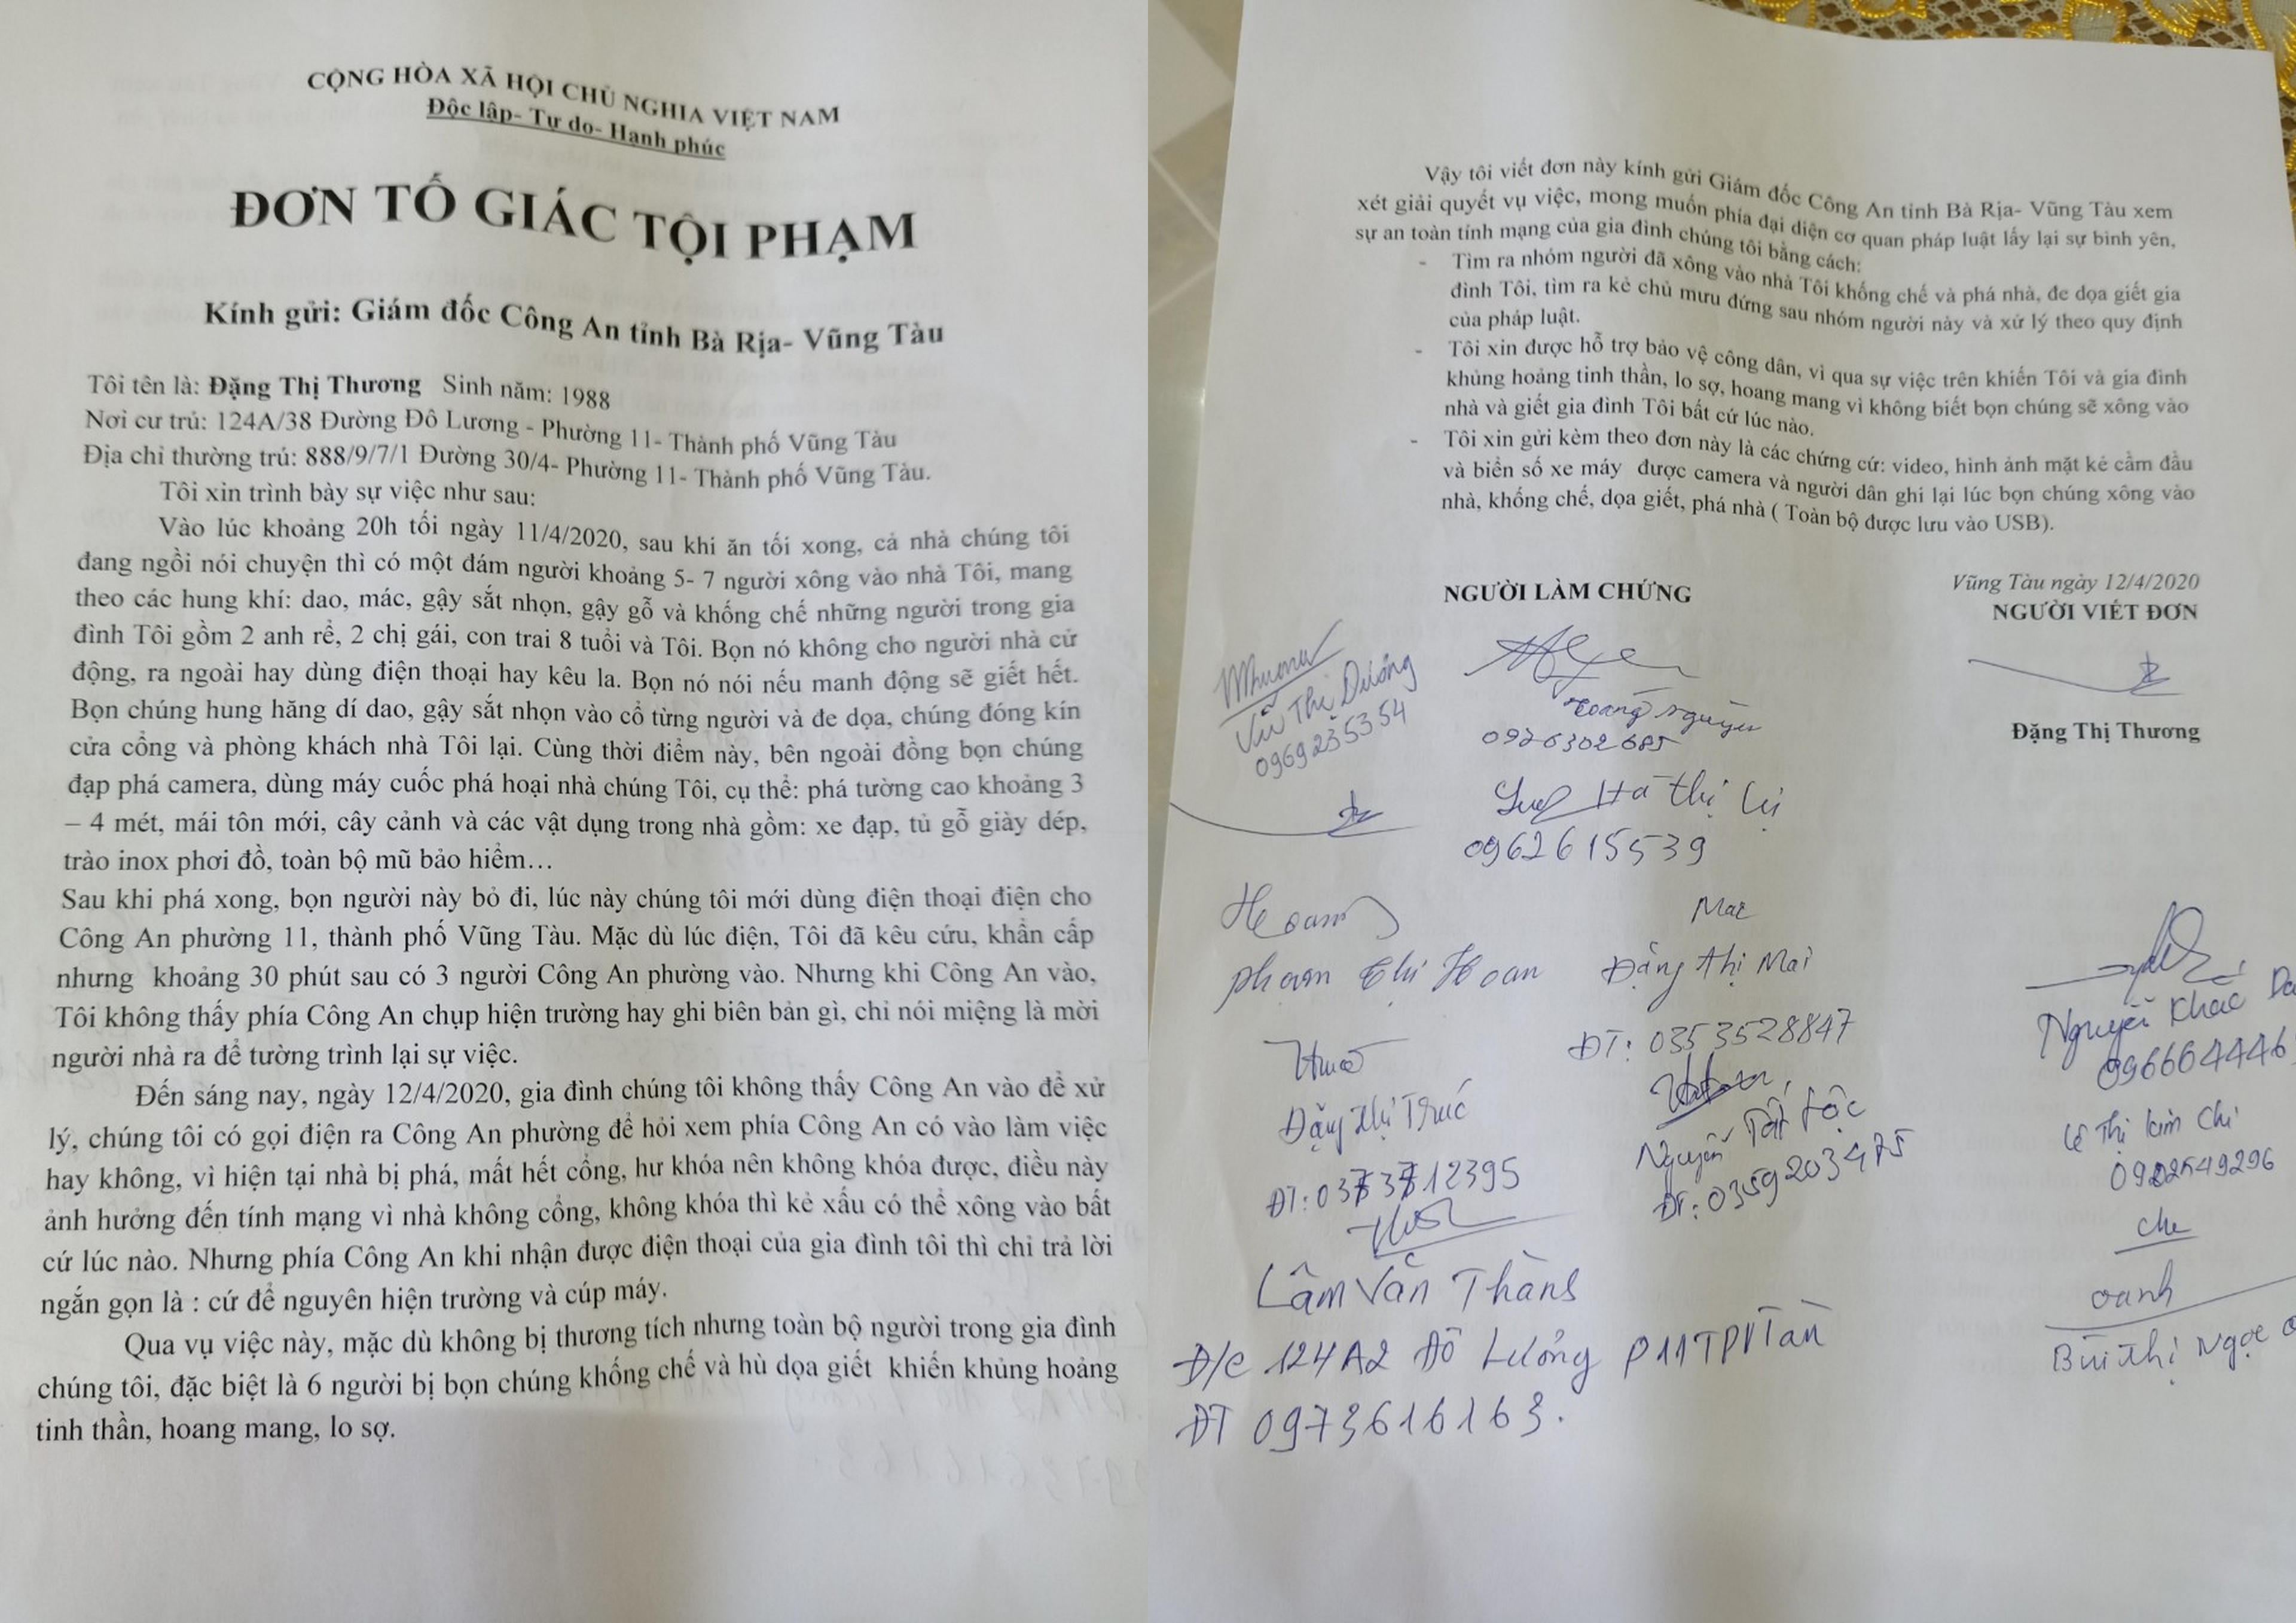 CỘNG HÒA XÃ HỘI CHỦ NGHIA VIỆT NAM
Độc lập- Tự do- Hạnh phúc
ĐƠN TỐ GIÁC TỘI PHẠM
Kính gửi: Giám đốc Công An tỉnh Bà Rịa- Vũng Tàu
Tôi tên là: Đặng Thị Thương Sinh năm: 1988
Nơi cư trú: 124A/38 Đường Đô Lương - Phường 11- Thành phố Vũng Tàu
Địa chỉ thường trú: 888/9/7/1 Đường 30/4- Phường 11- Thành phố Vũng Tàu.
Tôi xin trình bày sự việc như sau:
Vào lúc khoảng 20h tối ngày 11/4/2020, sau khi ăn tối xong, cả nhà chúng tôi
đang ngồi nói chuyện thì có một đám người khoảng 5- 7 người xông vào nhà Tôi, mang
theo các hung khí: dao, mác, gậy sắt nhọn, gậy gỗ và khống chế những người trong gia
đình Tôi gồm 2 anh rể, 2 chị gái, con trai 8 tuổi và Tôi. Bọn nó không cho người nhà cử
động, ra ngoài hay dùng điện thoại hay kêu la. Bọn nó nói nếu manh động sẽ giết hết.
Bọn chúng hung hăng dí dao, gậy sắt nhọn vào cổ từng người và đe dọa, chúng đóng kín
cửa cổng và phòng khách nhà Tôi lại. Cùng thời điểm này, bên ngoài đồng bọn chúng
đạp phá camera, dùng máy cuốc phá hoại nhà chúng Tôi, cụ thể: phá tường cao khoảng 3
– 4 mét, mái tôn mới, cây cảnh và các vật dụng trong nhà gồm: xe đạp, tủ gỗ giày dép,
trào inox phơi đồ, toàn bộ mũ bảo hiểm…
Sau khi phá xong, bọn người này bỏ đi, lúc này chúng tôi mới dùng điện thoại điện cho
Công An phường 11, thành phố Vũng Tàu. Mặc dù lúc điện, Tôi đã kêu cứu, khẩn cấp
nhưng khoảng 30 phút sau có 3 người Công An phường vào. Nhưng khi Công An vào,
Tôi không thấy phía Công An chụp hiện trường hay ghi biên bản gì, chỉ nói miệng là mời
người nhà ra để tường trình lại sự việc.
Đến sáng nay, ngày 12/4/2020, gia đình chúng tôi không thấy Công An vào để xử
lý, chúng tôi có gọi điện ra Công An phường để hỏi xem phía Công An có vào làm việc
hay không, vì hiện tại nhà bị phá, mất hết cổng, hư khóa nên không khóa được, điều này
ảnh hưởng đến tính mạng vì nhà không cổng, không khóa thì kẻ xấu có thể xông vào bất
cứ lúc nào. Nhưng phía Công An khi nhận được điện thoại của gia đình tôi thì chỉ trả lời
ngắn gọn là : cứ để nguyên hiện trường và cúp máy.
Qua vụ việc này, mặc dù không bị thương tích nhưng toàn bộ người trong gia đình
chúng tôi, đặc biệt là 6 người bị bọn chúng khống chế và hù dọa giết khiến khủng hoảng
tinh thần, hoang mang, lo sợ.
Vậy tôi viết đơn này kính gửi Giám đốc Công An tỉnh Bà Rịa- Vũng Tàu xem
xét giải quyết vụ việc, mong muốn phía đại diện cơ quan pháp luật lấy lại sự bình yên,
sự an toàn tính mạng của gia đình chúng tôi bằng cách:
- Tìm ra nhóm người đã xông vào nhà Tôi khống chế và phá nhà, đe dọa giết gia
đình Tôi, tìm ra kẻ chủ mưu đứng sau nhóm người này và xử lý theo quy định
của pháp luật.
- Tôi xin được hỗ trợ bảo vệ công dân, vì qua sự việc trên khiến Tôi và gia đình
khủng hoảng tinh thần, lo sợ, hoang mang vì không biết bọn chúng sẽ xông vào
nhà và giết gia đình Tôi bất cứ lúc nào.
- Tôi xin gửi kèm theo đơn này là các chứng cứ: video, hình ảnh mặt kẻ cầm đầu
và biển số xe máy được camera và người dân ghi lại lúc bọn chúng xông vào
nhà, khống chế, dọa giết, phá nhà ( Toàn bộ được lưu vào USB).
Vũng Tàu ngày 12/4/2020
NGƯỜI LÀM CHỨNG NGƯỜI VIẾT ĐƠN
Vũ Thị Dương
0969235354
Hoàng Nguyên
0926302685
Đặng Thị Thương
Hà Thị Lý
0962615539
Hoan
Phạm Thị Hoan
Mai
Đặng Thị Mai
ĐT: 0353528847
Nguyễn Khắc
096664446
Đặng Thị Trúc
ĐT: 0373712395
Nguyễn Tất Lộc
ĐT: 0359203475
Lê Thị Kim Chi
0902549296
Chi
Lâm Văn Thàns
Đ/C 124A2 Đô Lương P11TPVTàu
ĐT 0973616163.
oanh
Bùi Thị Ngọc